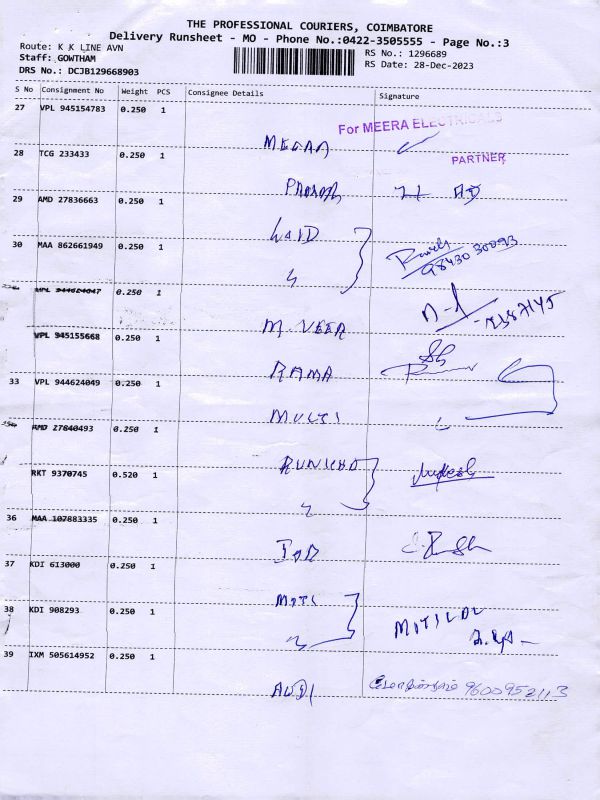 THE PROFESSIONAL COURIERS, COIMBATORE
Delivery Runsheet - MO - Phone No.:0422-3505555 - Page No.:3
Route: K K LINE AVN
RS No.: 1296689
Staff: GOWTHAM
RS Date: 28-Dec-2023
DRS No.: DCJB129668903
S No Consignment No Weight PCS Consignee Details Signature
27 VPL 945154783 0.250 1
For MEERA ELECTRICALS
MEERA
PARTNER
28 TCG 233433 0.250 1
29 AMD 27836663 0.250 1
30 MAA 862661949 0.250 1
98430 30093
VPL 944624047 0.250 1
M. VEER
VPL 945155668 0.250 1
RAMA
33 VPL 944624049 0.250 1
MULTI
AMD 27840493 0.250 1
RKT 9370745 0.520 1
36 MAA 107883335 0.250 1
37 KDI 613000 0.250 1
MOTI
38 KDI 908293 0.250 1
MOTILAL
39 IXM 505614952 0.250 1
AUDI 9600952113